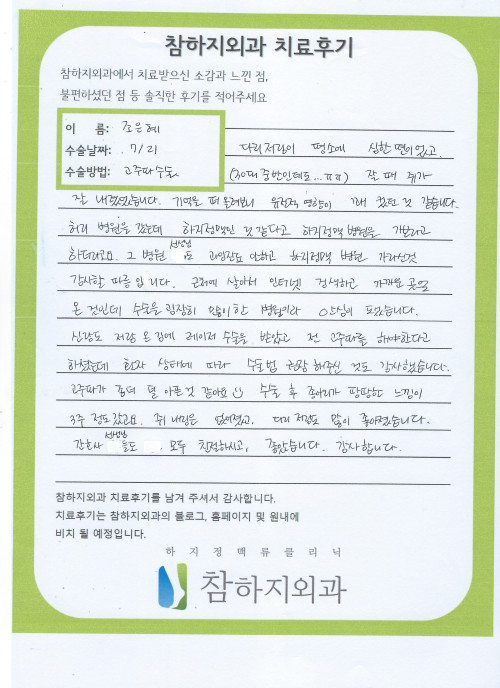 참하지외과 치료후기
참하지외과에서 치료받으신 소감과 느낀 점,
불편하셨던 점 등 솔직한 후기를 적어주세요
이 름: 조은혜
수술날짜: 7/21
수술방법: 고주파수술
다리저림이 평소에 심한 편이었고,
(30대 중반인데도...ㅠㅠ) 잘 때 쥐가
잘 내렸었습니다. 기억을 떠올려보니 유전적 영향이 가장 컸던 것 같습니다.
허리 병원을 갔는데 하지정맥인 것 같다고 하지정맥 병원을 가보라고
하더라고요. 그 병원 선생님도 과잉진료 안하고 하지정맥 병원 가라신것
감사할 따름입니다. 근처에 살아서 인터넷 검색하고 가까운 곳으로
온 것인데 수술을 굉장히 많이 한 병원이라 안심이 되었습니다.
신랑도 저랑 온 김에 레이저 수술을 받았고 전 고주파를 하야한다고
하셨는데 환자 상태에 따라 수술법 권장해주신 것도 감사했습니다.
고주파가 좀더 덜 아픈것 같아요 수술 후 종아리가 땅땅한 느낌이
3주 정도 갔고요. 쥐 내림은 없어졌고, 다리 저림도 많이 좋아졌습니다.
간호사 선생님들도 모두 친절하시고, 좋았습니다. 감사합니다.
참하지외과 치료후기를 남겨 주셔서 감사합니다.
치료후기는 참하지외과의 블로그, 홈페이지 및 원내에
비치 될 예정입니다.
하지정맥류클리닉
참하지외과